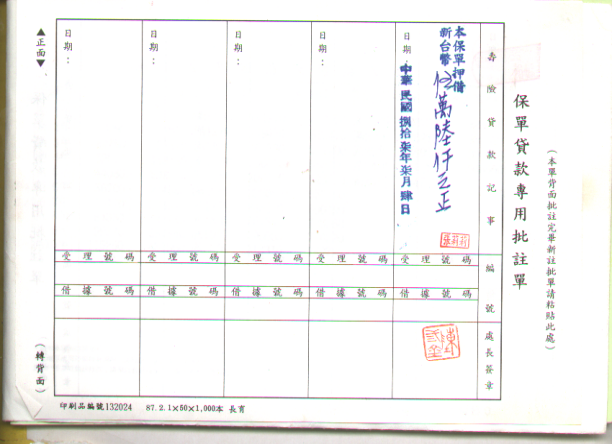 (本單背面批註完畢新註批單請粘貼此處)
保單貸款專用批註單
壽險貸款記事
本保單押借
新台幣伍萬陸仟元正
日期:
中華民國捌拾柒年柒月肆日
日期:
日期:
日期:
日期:
編號
受理號碼
受理號碼
受理號碼
受理號碼
受理號碼
借據號碼
借據號碼
借據號碼
借據號碼
借據號碼
處長簽章
▲正面▼
(轉背面)
印刷品編號132024 87.2.1×50×1,000本 長育